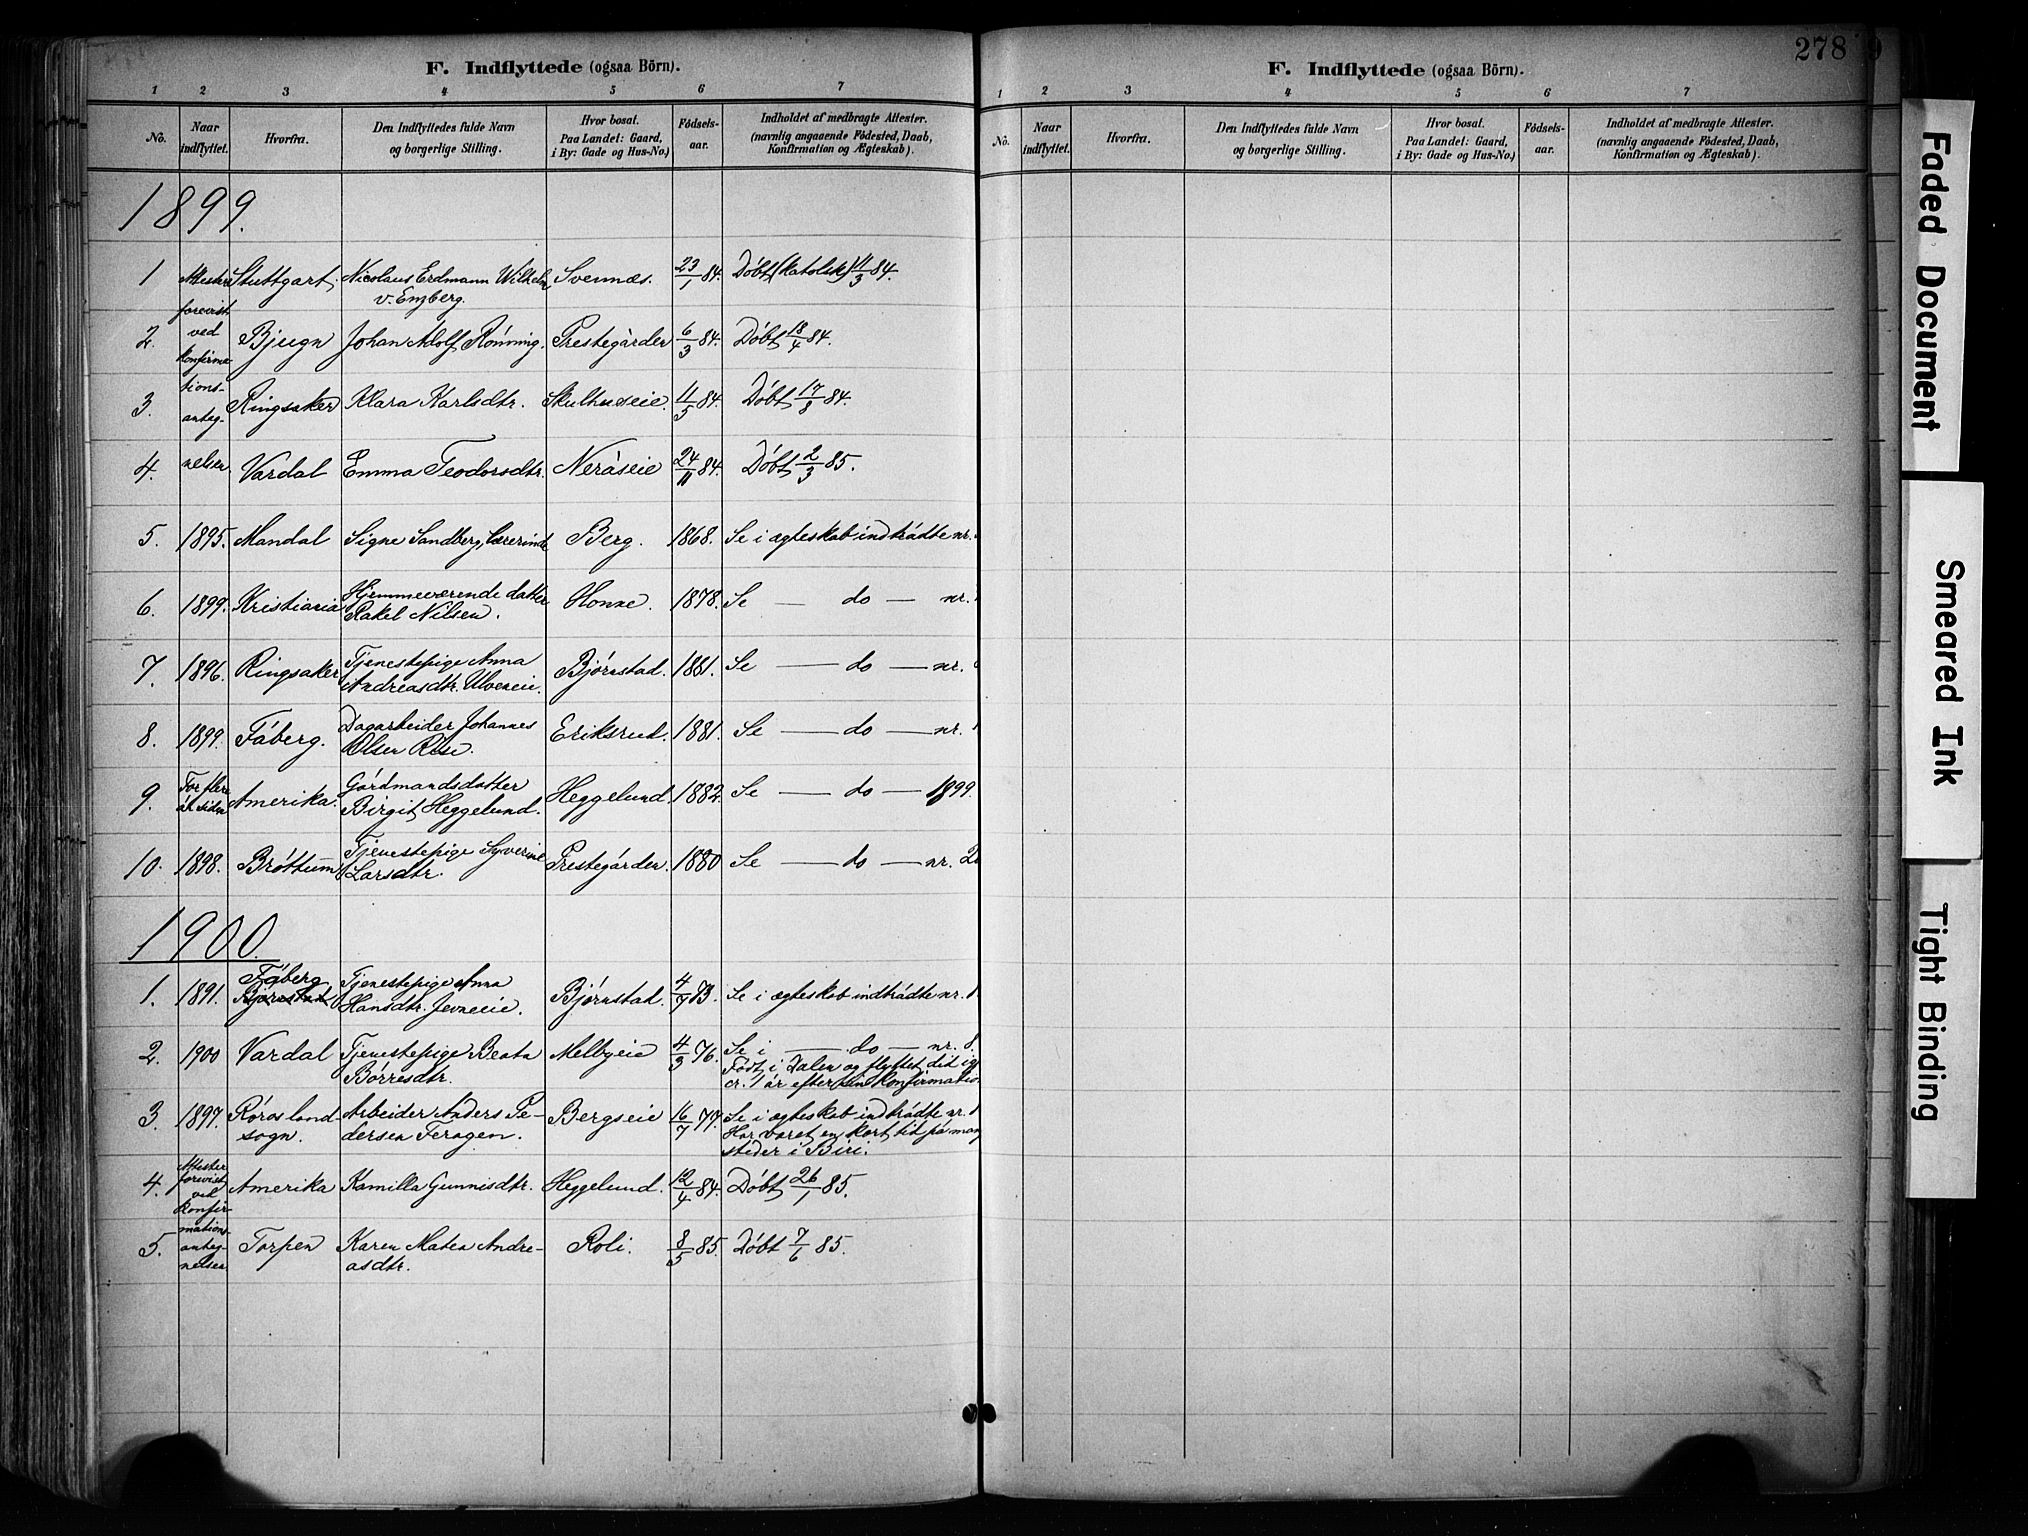 278
F. Indflyttede (ogsaa Börn).
1 2 3 4 5 6 7
No. Naar indflyttet. Hvorfra. Den Indflyttedes fulde Navn og borgerlige Stilling. Hvor bosat. Paa Landet: Gaard, i By: Gade og Hus-No.) Fódsels-aar. Indholdet af medbragte Attester. (navnlig angaaende Födested, Daab, Konfirmation og Ægteskab).
1899.
1 Attester Stuttgart. Nicolaus Erdmann Wilhelm Svennæs. 23/1 84. Döbt (katolsk) 11/3 84.
v. Enzberg.
forevist
2. ved Bjugn Johan Adolf Rönning. Prestegården 6/3 84. Döbt 18/4 84.
konfirma
tions-
3. anteg- Ringsaker Klara Karlsdtr. Skulhuseie. 11/5 84. Döbt 17/8 84.
4. nelsen Vardal Emma Teodorsdtr. Neråseie 24/11 84. Döbt 2/3 85.
5. 1895. Mandal Signe Sandberg, Lærerinde Berg. 1868. Se i ægteskab indtrådte nr.
6. 1899. Kristiania Hjemmeværende datter Honne. 1878. Se — do — nr.
Rakel Nilsen.
7. 1896. Ringsaker Tjenestepige Anna Bjørnstad. 1881. Se — do — nr.
Andreasdtr. Ulveneie.
8. 1899. Fåberg. Dagarbeider Johannes Eriksrud. 1881. Se — do — nr.
Olsen Rise.
9. For flere år siden Amerika. Gårdmandsdatter Heggelund. 1882. Se — do — 1899.
Birgit Heggelund.
10. 1898. Bröttum Tjenestepige Syverine Prestegården. 1880 Se — do — nr. 2
Larsdtr.
1900.
Fåberg
1. 1891. Bjørnstad Tjenestepige Anna Bjørnstad. 4/7 73. Se i ægteskab indtrådte nr. 1
Hansdtr. Jevneeie.
2. 1900 Vardal Tjenestepige Beata Melbyeie 4/3 76. Se i — do — nr. 8.
Börresdtr. Födt i Dalen og flyttet did ig
cr. 1 år efter sin konfirmatio
3. 1897. Röros land- Arbeider Anders Pe- Bergseie 16/7 77. Se i ægteskab indtrådte nr. 1
sogn. dersen Feragen. Har været en kort tid på mang
steder i Biri.
4. Attester forevist ved konfir- Amerika Kamilla Gunnisdtr. Heggelund. 12/4 84. Döbt 26/1 85.
5. mations anteg- nelsen Torpen Karen Matea Andre- Roli. 8/5 85. Döbt 7/6 85.
asdtr.
F. Indflyttede (ogsaa Börn).
1 2 3 4 5 6 7
No. Naar indflyttet. Hvorfra. Den Indflyttedes fulde Navn og borgerlige Stilling. Hvor bosat. Paa Landet: Gaard, i By: Gade og Hus-No.) Födsels-aar. Indholdet af medbragte Attester. (navnlig angaaende Födested, Daab, Konfirmation og Ægteskab).
Faded Document
Smeared Ink
Tight Binding